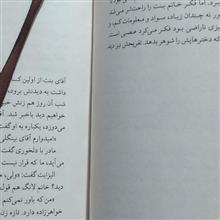 بود. اما فکر خانم بنت را راحت‌تر می‌شد
نه چندان زیاد، سواد و معلومات کم، و
ی ناراضی بود فکر می‌کرد عصبی است.
که دخترهایش را شوهر بدهد. تفریحش بود
آقای بنت از اولین کسا
داشت به دیدنش برود،
شب آن روز هم زنش خبر
خواهیم دید باخبر شد.
می‌دوزد، یکباره به او گفت:
«امیدوارم آقای بینگلی
مادر با دلخوری گفت:
می‌آید، ما که قرار نیست
الیزابت گفت: «ولی،
دید؟ خانم لانگ هم قول
«من که باور نمی‌کنم
خواهرزاده دارد. تازه زن